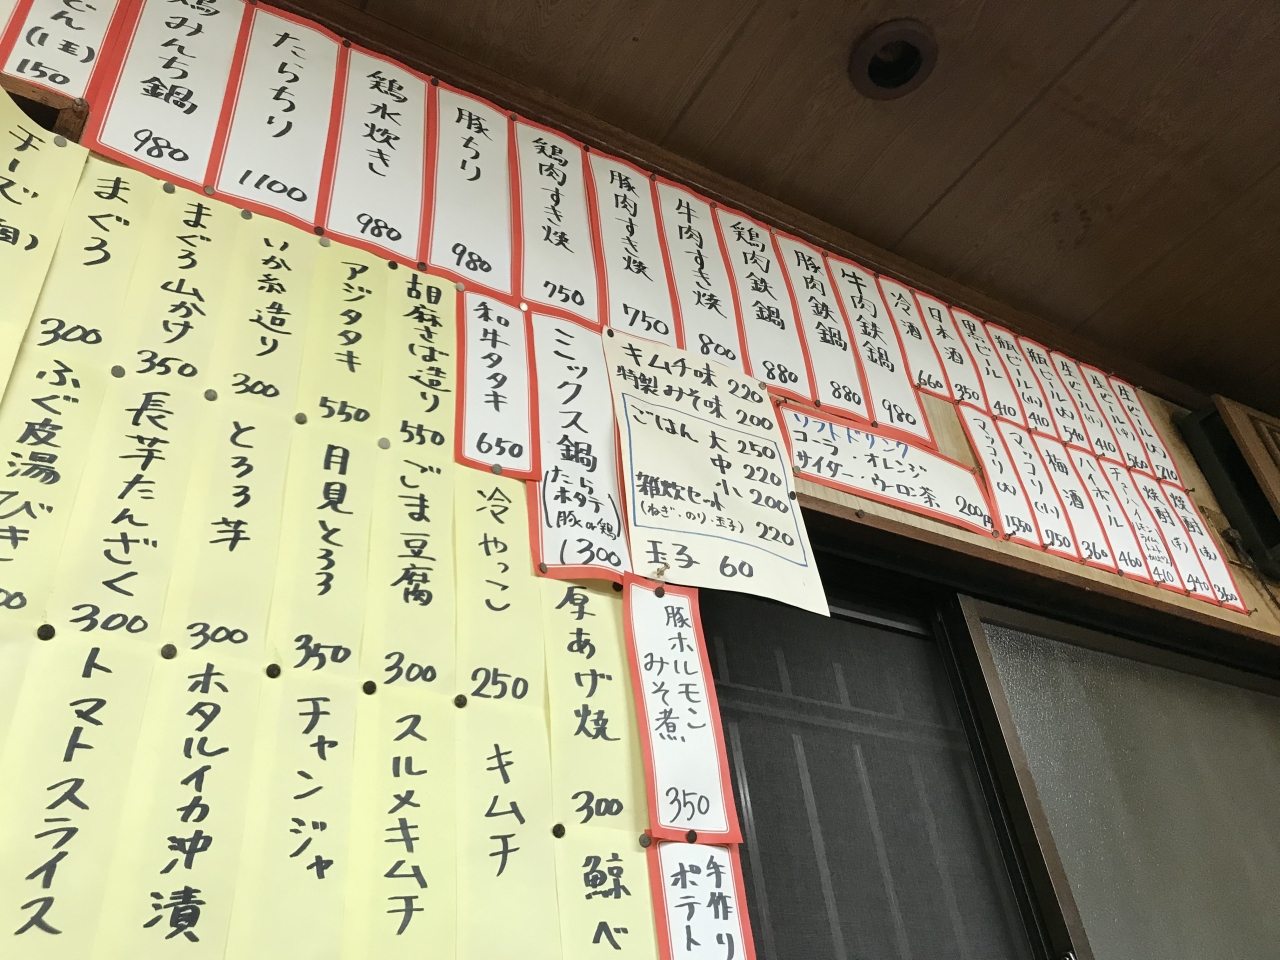 どん
(1玉)
150
鶏みんち鍋
980
たらちり
1100
鶏水炊き
980
豚ちり
980
鶏肉すき焼
750
豚肉すき焼
750
牛肉すき焼
800
鶏肉鉄鍋
880
豚肉鉄鍋
880
牛肉鉄鍋
980
冷酒
660
日本酒
350
黒ビール
410
瓶ビール(小)
410
瓶ビール(大)
540
生ビール(中)
410
生ビール(大)
560
生ビール(小)
210
和牛タタキ
650
ミックス鍋
(たら
ホタテ
豚or鶏)
1300
キムチ味 220
特製みそ味 200
ごはん 大 250
中 220
小 200
雑炊セット
(ねぎ・のり・玉子) 220
玉子 60
ソフトドリンク
コーラ・オレンジ
サイダー・ウーロン茶 200円
マッコリ(大)
マッコリ(小)
750
梅酒
360
ハイボール
460
チューハイ
410
焼酎(芋)
440
焼酎(麦)
360
チーズ
まぐろ
300
まぐろ山かけ
350
いか糸造り
300
アジタタキ
550
胡麻さば造り
550
冷やっこ
250
厚あげ焼
300
豚ホルモン
みそ煮
350
ふぐ皮湯びき
長芋たんざく
300
とろろ芋
300
月見とろろ
350
ごま豆腐
300
キムチ
鯨ベ
手作り
ポテト
トマトスライス
ホタルイカ沖漬
チャンジャ
スルメキムチ